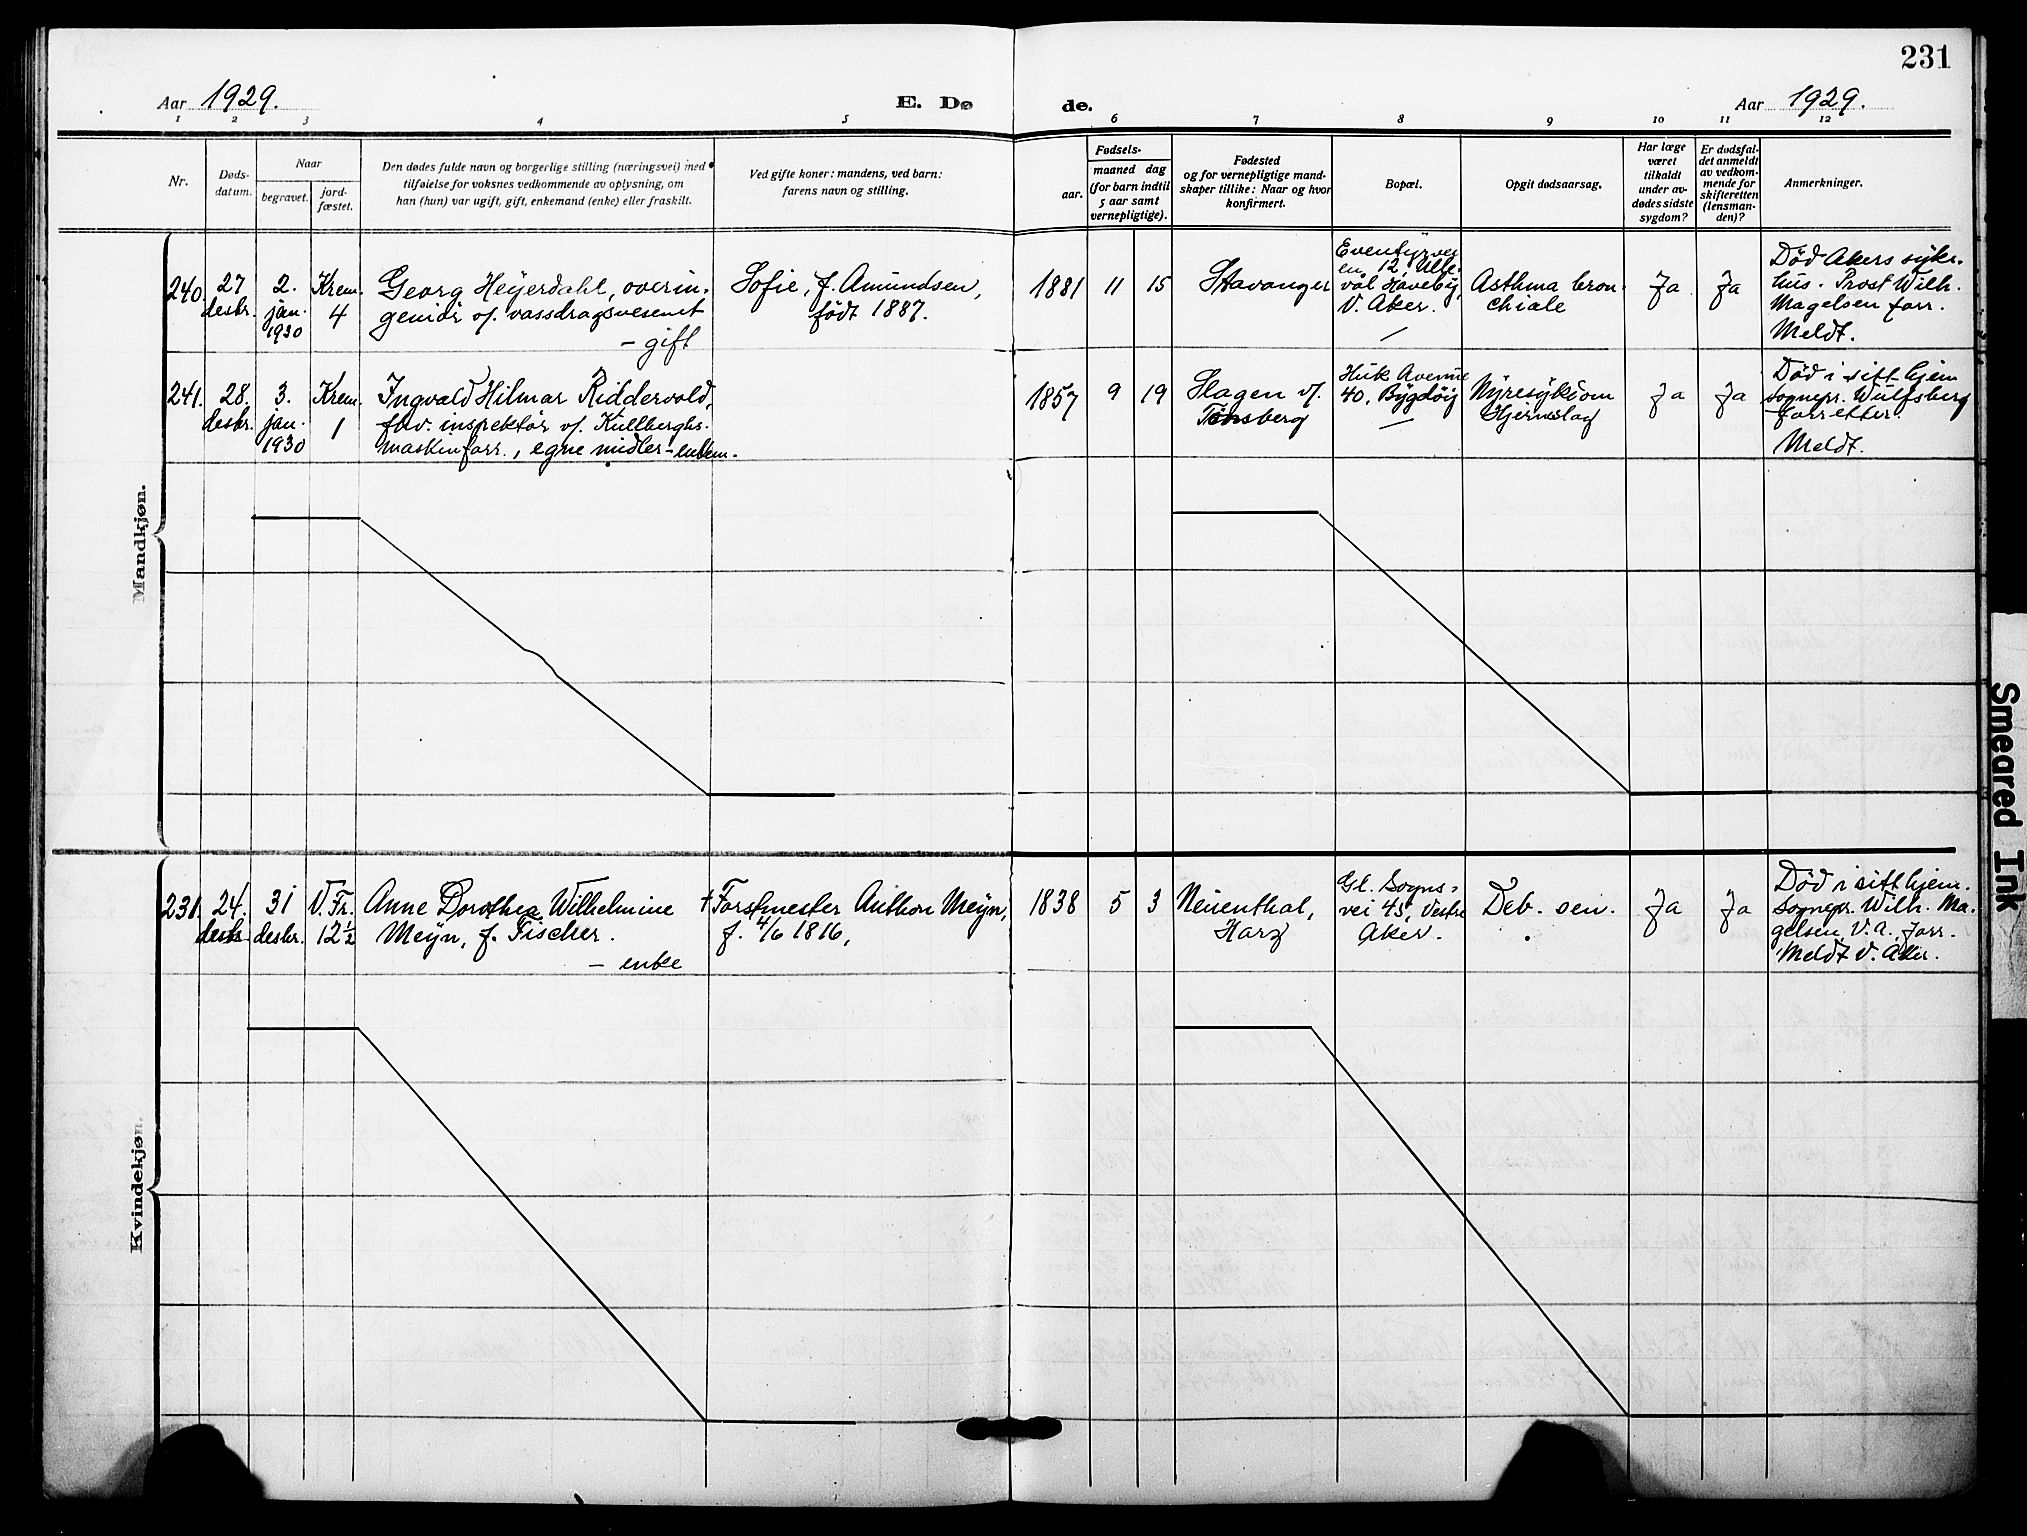 231
Aar 1929.
E. Dø
de.
Aar 1929.
1 2 3 4 5 6 7 8 9 10 11 12
Nr.
Døds-
datum.
Naar
begravet.
jord-
fæstet.
Den dødes fulde navn og borgerlige stilling (næringsvei) med
tilføielse for voksnes vedkommende av oplysning, om
han (hun) var ugift, gift, enkemand (enke) eller fraskilt.
Ved gifte koner: mandens, ved barn:
farens navn og stilling.
Fødsels-
aar.
maaned dag
(for barn indtil
5 aar samt
vernepligtige).
Fødested
og for vernepligtige mand-
skaper tillike: Naar og hvor
konfirmert.
Bopæl.
Opgit dødsaarsag.
Har læge
været
tilkaldt
under av-
dødes sidste
sygdom?
Er dødsfal-
det anmeldt
av vedkom-
mende for
skifteretten
(lensman-
den)?
Anmerkninger.
Mandkjøn.
240
27
desbr.
2.
jan.
1930
Krem.
4
Georg Heyerdahl, overin-
geniør v. vassdragsvesenet
- gift
Sofie, f. Amundsen,
født 1887.
1881 11 15
Stavanger
Eventyrvei
en 12, Ulle-
vål Haveby,
V. Aker.
Asthma bron-
chiale
Ja
Ja
Død Akers syke-
hus. Prost Wilh.
Magelsen forr.
Meldt.
241.
28.
desbr.
3.
jan.
1930
Krem.
1
Ingvald Hilmar Riddervold,
fhv. inspektør v. Kullberghs
maskinforr., egne midler - enkem.
1857 9 19
Slagen v.
Tønsberg
Huk Avenue
40, Bygdøy
Nyresykdom
Hjerneslag
Ja
Ja
Død i sitt hjem
Sognepr. Wulfsberg
forretter.
Meldt.
Kvindekjøn.
231.
24.
desbr.
31
desbr.
V. Fr.
12 ½
Anne Dorothea Wilhelmine
Meyn, f. Fischer.
- enke
† Forstmester Anthon Meyn,
f. 4/6 1816,
1838 5 3
Neuenthal,
Harz
Gl. Sogns-
vei 45, Vestre
Aker.
Deb. sen.
Ja
Ja
Død i sitt hjem.
Sognepr. Wilh. Ma-
gelsen, V. A. forr.
Meldt V. Aker.
Smeared Ink